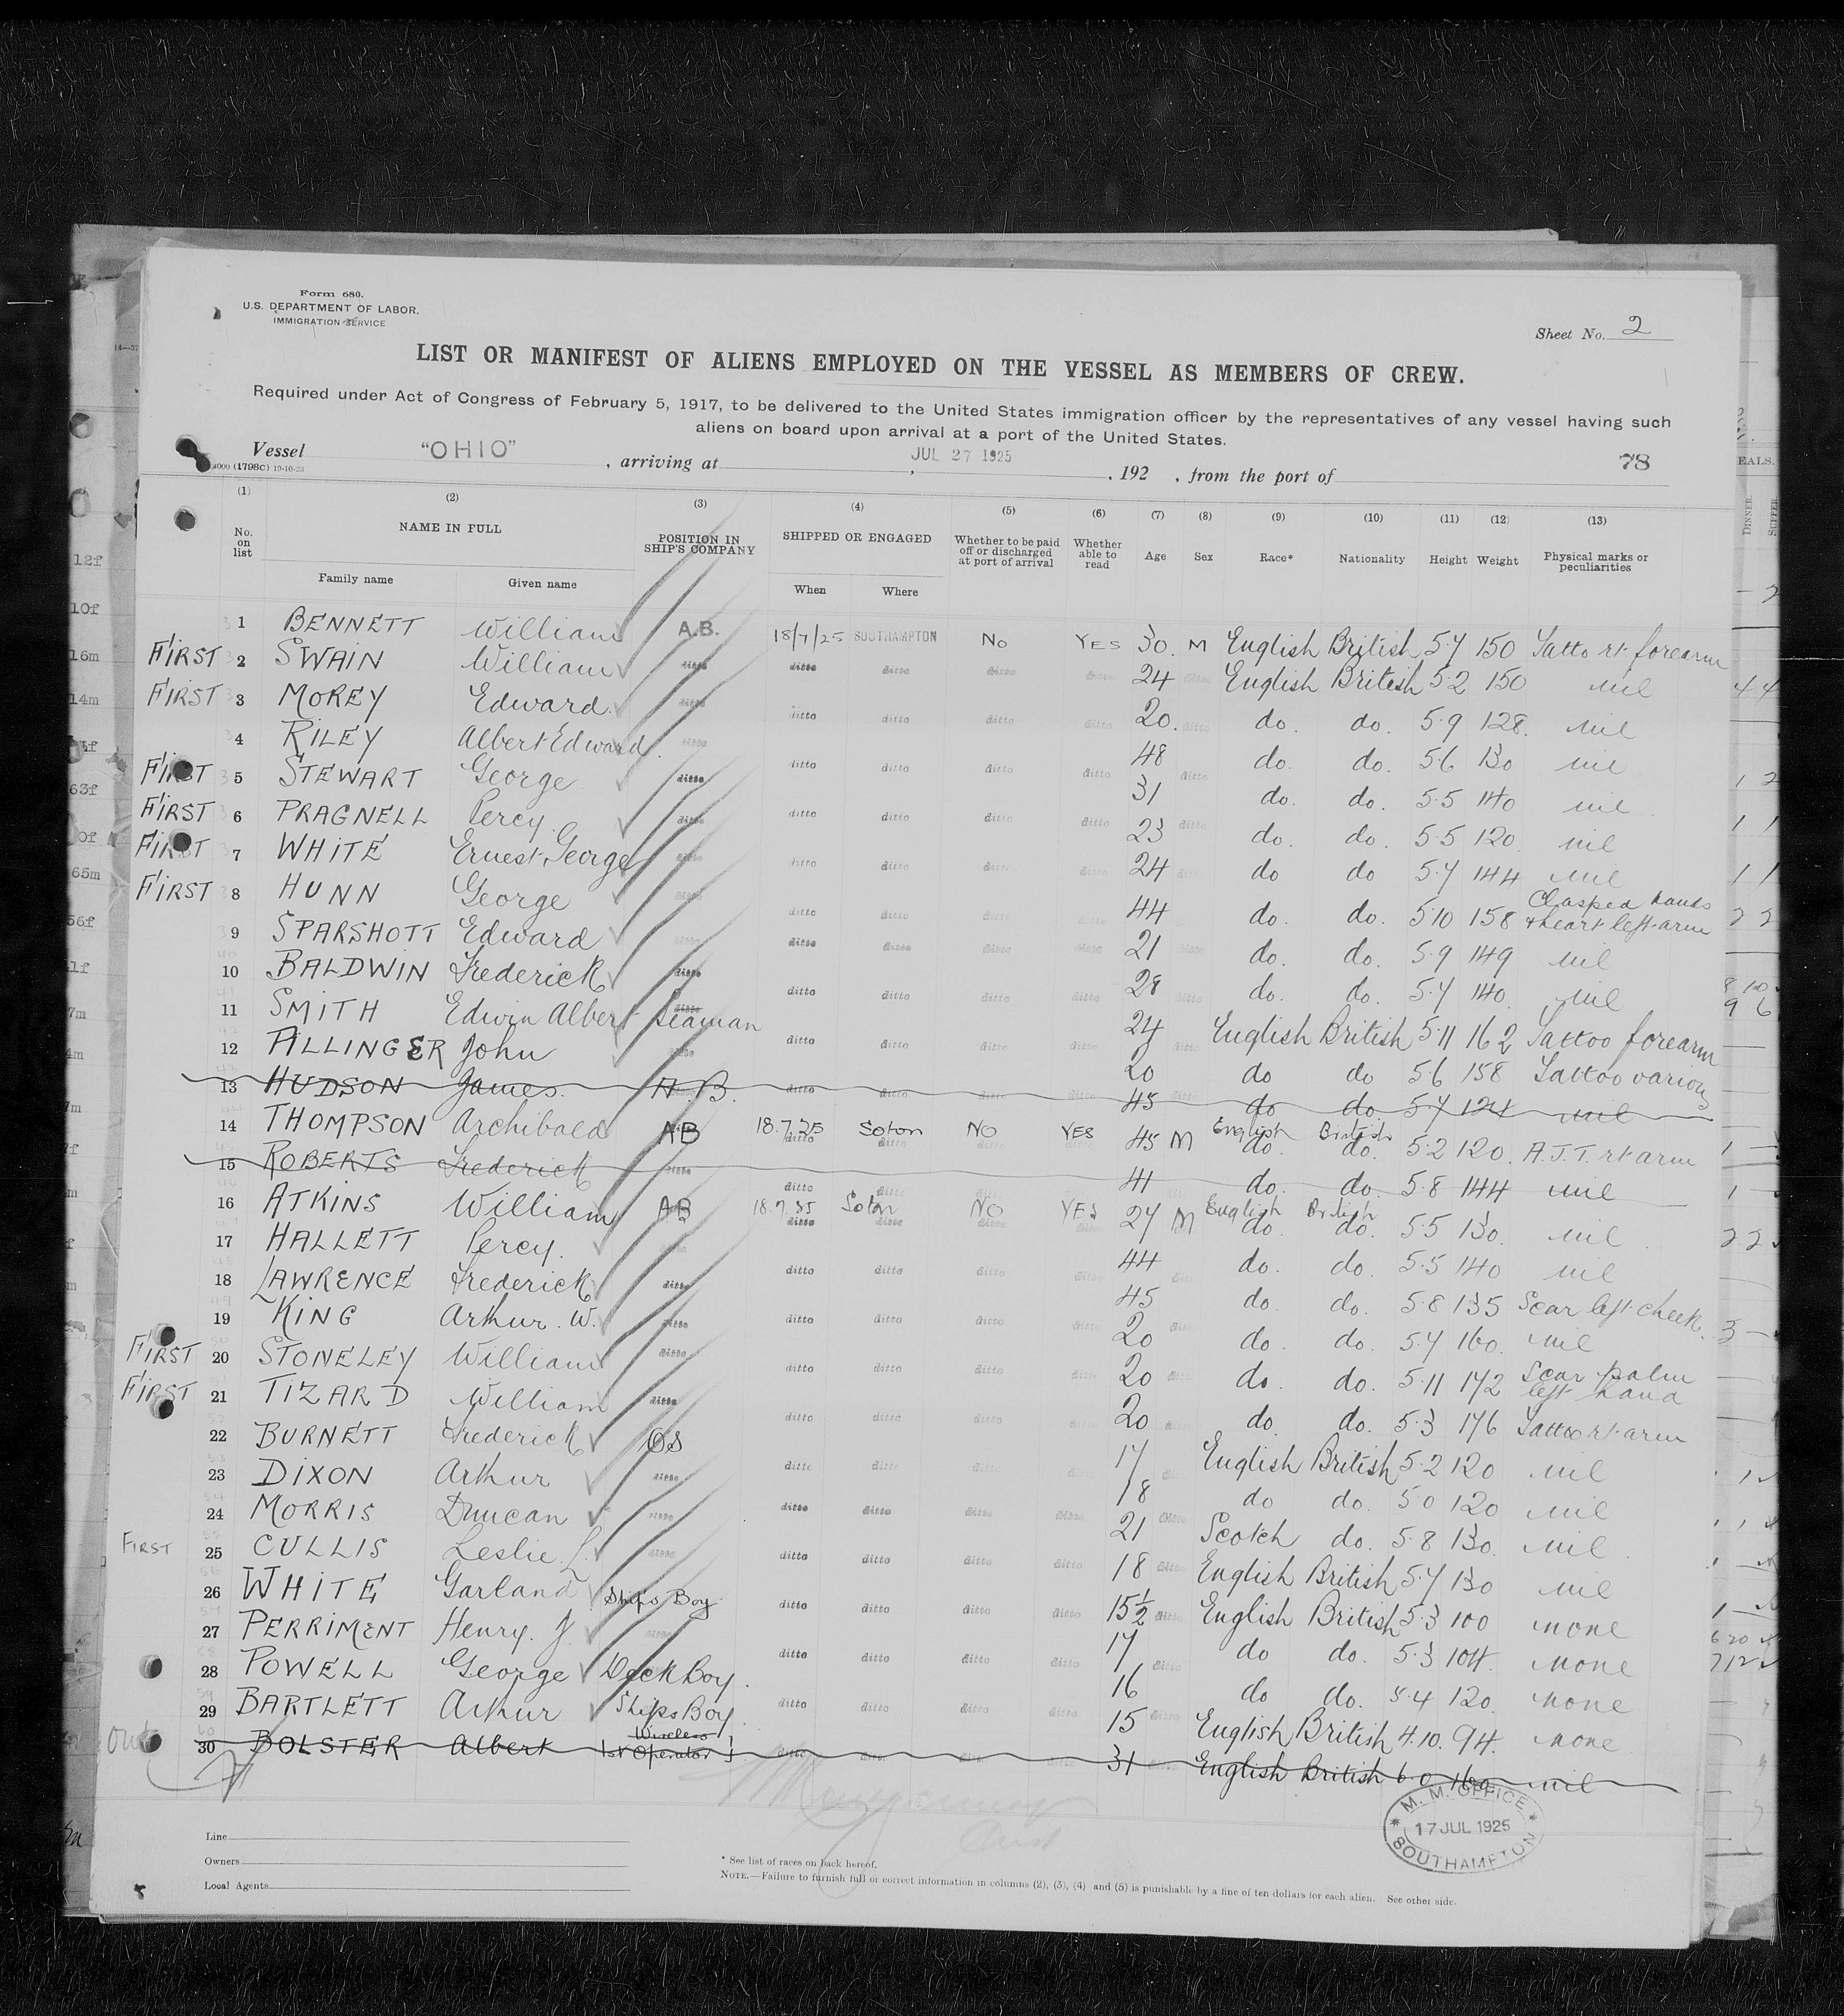 Form 680.
U.S. DEPARTMENT OF LABOR.
IMMIGRATION SERVICE
Sheet No. 2
LIST OR MANIFEST OF ALIENS EMPLOYED ON THE VESSEL AS MEMBERS OF CREW.
Required under Act of Congress of February 5, 1917, to be delivered to the United States immigration officer by the representatives of any vessel having such
aliens on board upon arrival at a port of the United States.
Vessel "OHIO", arriving at JUL 27 1925, 192 , from the port of 78
(1798C) 19-10-23
(1) (2) (3) (4) (5) (6) (7) (8) (9) (10) (11) (12) (13)
No. on list NAME IN FULL Family name Given name POSITION IN SHIP'S COMPANY SHIPPED OR ENGAGED When Where Whether to be paid off or discharged at port of arrival Whether able to read Age Sex Race* Nationality Height Weight Physical marks or peculiarities
1 BENNETT William A.B. 18/7/25 SOUTHAMPTON No YES 30. M English British 5.7 150 Tatto rt forearm
FIRST 2 SWAIN William ditto ditto ditto ditto ditto 24 ditto English British 5.2 150 nil
FIRST 3 MOREY Edward ditto ditto ditto ditto ditto 20. ditto do. do. 5.9 128. nil
4 RILEY Albert Edward ditto 48 do. do. 5.6 130 nil
FIRST 5 STEWART George ditto ditto ditto ditto ditto 31 ditto do. do. 5.5 140 nil
FIRST 6 PRAGNELL Percy. ditto ditto ditto ditto ditto 23 ditto do. do. 5.5 120. nil
FIRST 7 WHITE Ernest George ditto ditto ditto ditto ditto 24 ditto do do 5.7 144 nil
FIRST 8 HUNN George ditto ditto ditto ditto ditto 44 ditto do. do. 5.10 158 Clasped hands & heart left arm
9 SPARSHOTT Edward ditto ditto ditto ditto ditto 21 ditto do. do. 5.9 149 nil
10 BALDWIN Frederick ditto ditto ditto ditto ditto 28 ditto do. do. 5.7 140. nil
11 SMITH Edwin Albert Seaman 24 English British 5.11 162 Tattoo forearm
12 ALLINGER John ditto ditto ditto ditto ditto 20 ditto do do 5.6 158 Tattoo various
13 HUDSON James. A.B. ditto ditto ditto ditto 45 do do. 5.7 124 nil
14 THOMPSON Archibald AB 18.7.25 ditto Soton ditto NO YES 45 M English do. British do. 5.2 120. A.J.T. rt arm
15 ROBERTS Frederick ditto ditto ditto 41 do. do. 5.8 144 nil
16 ATKINS William AB Soton NO YES 27 M English do British do. 5.5 130. nil
17 HALLETT Percy. ditto 44 do. do. 5.5 140 nil
18 LAWRENCE Frederick ditto ditto ditto ditto ditto 45 ditto do. do. 5.8 135 Scar left cheek.
19 KING Arthur. W. ditto ditto ditto ditto ditto 20 ditto do. do. 5.7 160. nil
FIRST 20 STONELEY William ditto ditto ditto ditto ditto 20 ditto do. do. 5.11 172 Scar palm left hand
FIRST 21 TIZARD William ditto ditto ditto ditto ditto 20 ditto do. do. 5.3 176 Tattoo rt arm
22 BURNETT Frederick OS 17 English British 5.2 120 nil
23 DIXON Arthur ditto ditto ditto ditto ditto 18 ditto do do. 5.0 120 nil
24 MORRIS Duncan ditto ditto ditto ditto ditto 21 ditto Scotch do. 5.8 130. nil
FIRST 25 CULLIS Leslie. L. ditto ditto ditto ditto ditto 18 ditto English British 5.7 130 nil
26 WHITE Garland Ships Boy ditto ditto ditto ditto 15½ ditto English British 5.3 100 none
27 PERRIMENT Henry. J. ditto 17 do do. 5.3 104. none
28 POWELL George Deck Boy. ditto ditto ditto ditto 16 ditto do do. 5.4 120. none
29 BARTLETT Arthur Ships Boy. 15 ditto English British 4.10. 94. none
out 30 BOLSTER Albert Wireless 1st Operator 31 English British 6.0 160 nil
M. M. OFFICE
17 JUL 1925
SOUTHAMPTON
Line
Owners
Local Agents
* See list of races on back hereof.
NOTE.—Failure to furnish full or correct information in columns (2), (3), (4) and (5) is punishable by a fine of ten dollars for each alien. See other side.